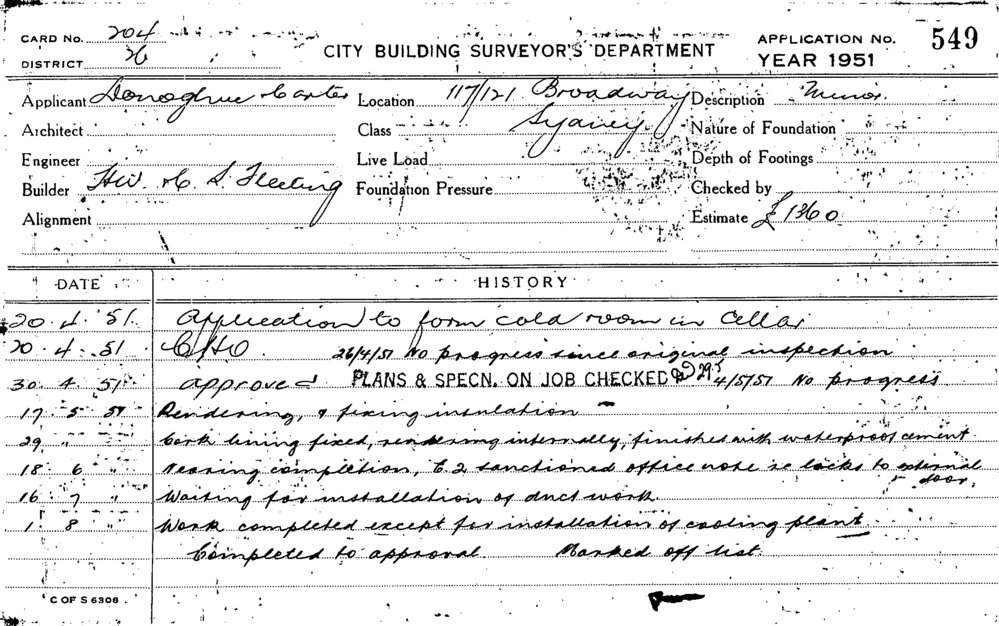 CARD No. 204
DISTRICT
CITY BUILDING SURVEYOR'S DEPARTMENT
APPLICATION No. 549
YEAR 1951
Applicant Donoghue & Carter Location 117/121 Broadway Description Minor.
Architect Class Sydney Nature of Foundation
Engineer Live Load Depth of Footings
Builder S. Fleeting Foundation Pressure Checked by
Alignment Estimate £1360
DATE HISTORY
20.4.51 Application to form cold room in Cellar
20.4.51 CHO. 26/4/51 No progress since original inspection
30 4 51 approved PLANS & SPECN. ON JOB CHECKED 4/5/51 No progress
17 5 51 Rendering, & fixing insulation
29 " " Cork lining fixed, rendering internally, finished with waterproof cement
18 6 " nearing completion, C.2 sanctioned office note re locks to external door,
16 7 " Waiting for installation of duct work.
1 8 " Work completed except for installation of cooling plant
Completed to approval Marked off list.
C OF S 6306